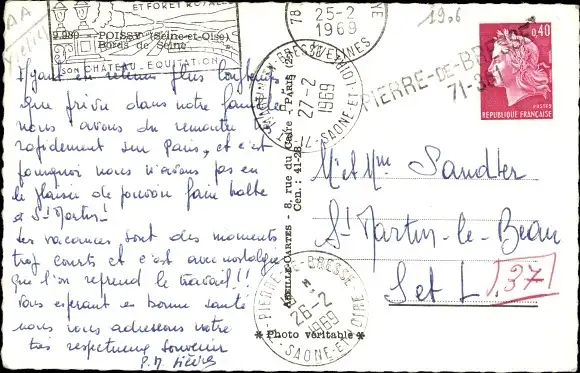 AA
ET FORET ROYALE
9.989 - POISSY (Seine-et-Oise)
Bords de Seine
SON CHATEAU. EQUITATION
78
25-2
1969
YE
YVELINES
1906
0,40
POSTES
REPUBLIQUE FRANÇAISE
PIERRE-DE-BRESSE
71-351
27-2
1969
71 SAONE-ET-LOIRE
ABEILLE-CARTES - 8, rue du Caire - PARIS (2e)
Cen.: 41-28
Ayant été retenus plus longtemps
que prévu dans notre famille
nous avons dû remonter
rapidement sur Paris, et c'est
pourquoi nous n'avons pas eu
le plaisir de pouvoir faire halte
à St Martin!
Les vacances sont des moments
trop courts et c'est avec nostalgie
que l'on reprend le travail!!
Vous espérant en bonne santé
nous vous adressons notre
très respectueux souvenir
P.M
Mr et Mme Sandler
St Martin-le-Beau
I et L. 37
PIERRE-DE-BRESSE
26-2
1969
SAONE-ET-LOIRE
* Photo véritable *